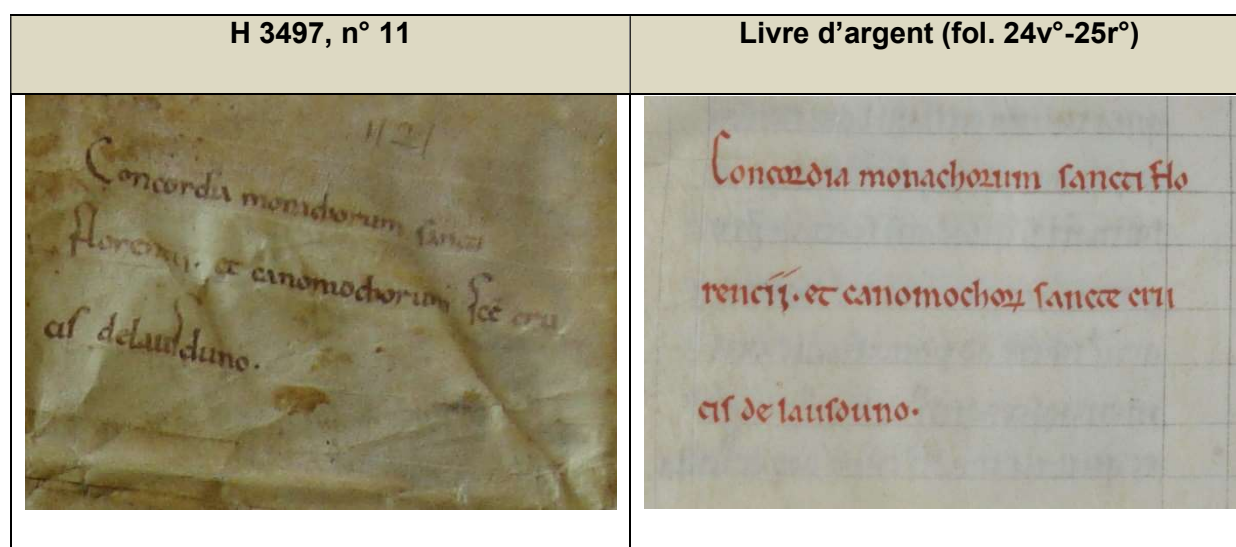 H 3497, n° 11
Livre d'argent (fol. 24v°-25r°)
Concordia monachorum sancti
florencij. et canomochorum sce cru
cis delausduno.
Concordia monachorum sancti flo
rencij. et canomochoꝝ sancte cru
cis de lausduno.